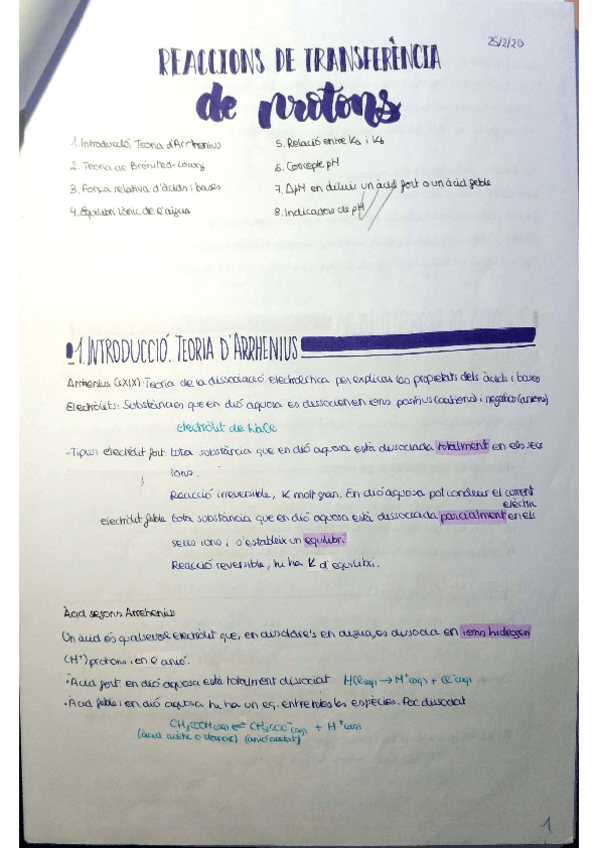 25/2/20
REACCIONS DE TRANSFERÈNCIA
de protons
1. Introducció, Teoria d'Arrhenius
2. Teoria de Brönsted-Lowry
3. Força relativa d'àcids i bases
4. Equilibri iònic de l'aigua
5. Relació entre Ka i Kb
6. Concepte pH
7. ΔpH en diluir un àcid fort o un àcid feble
8. Indicadors de pH
1. INTRODUCCIÓ. TEORIA D'ARRHENIUS
Arrhenius (sXIX): Teoria de la dissociació electrolítica per explicar les propietats dels àcids i bases
Electròlits: Substàncies que en dió aquosa es dissocien en ions positius (cations) i negatius (anions)
electròlit de NaCl
-Tipus: electròlit fort: tota substància que en dió aquosa està dissociada totalment en els seus
ions.
Reacció irreversible, K molt gran. En dió aquosa pot conduir el corrent
elèctric
electròlit feble: tota substància que en dió aquosa està dissociada parcialment en els
seus ions i s'estableix un equilibri
Reacció reversible, hi ha K d'equilibri.
Àcid segons Arrhenius
Un àcid és qualsevol electròlit que, en dissoldre's en aigua, es dissocia en ions hidrogen
(H⁺) protons i en l'anió.
• Àcid fort: en dió aquosa està totalment dissociat HCl(aq) → H⁺(aq) + Cl⁻(aq)
• Àcid feble: en dió aquosa hi ha un eq. entre totes les espècies. Poc dissociat
CH₃COOH(aq) ⇌ CH₃COO⁻(aq) + H⁺(aq)
(àcid acètic o etanoic) (anió acetat)
1